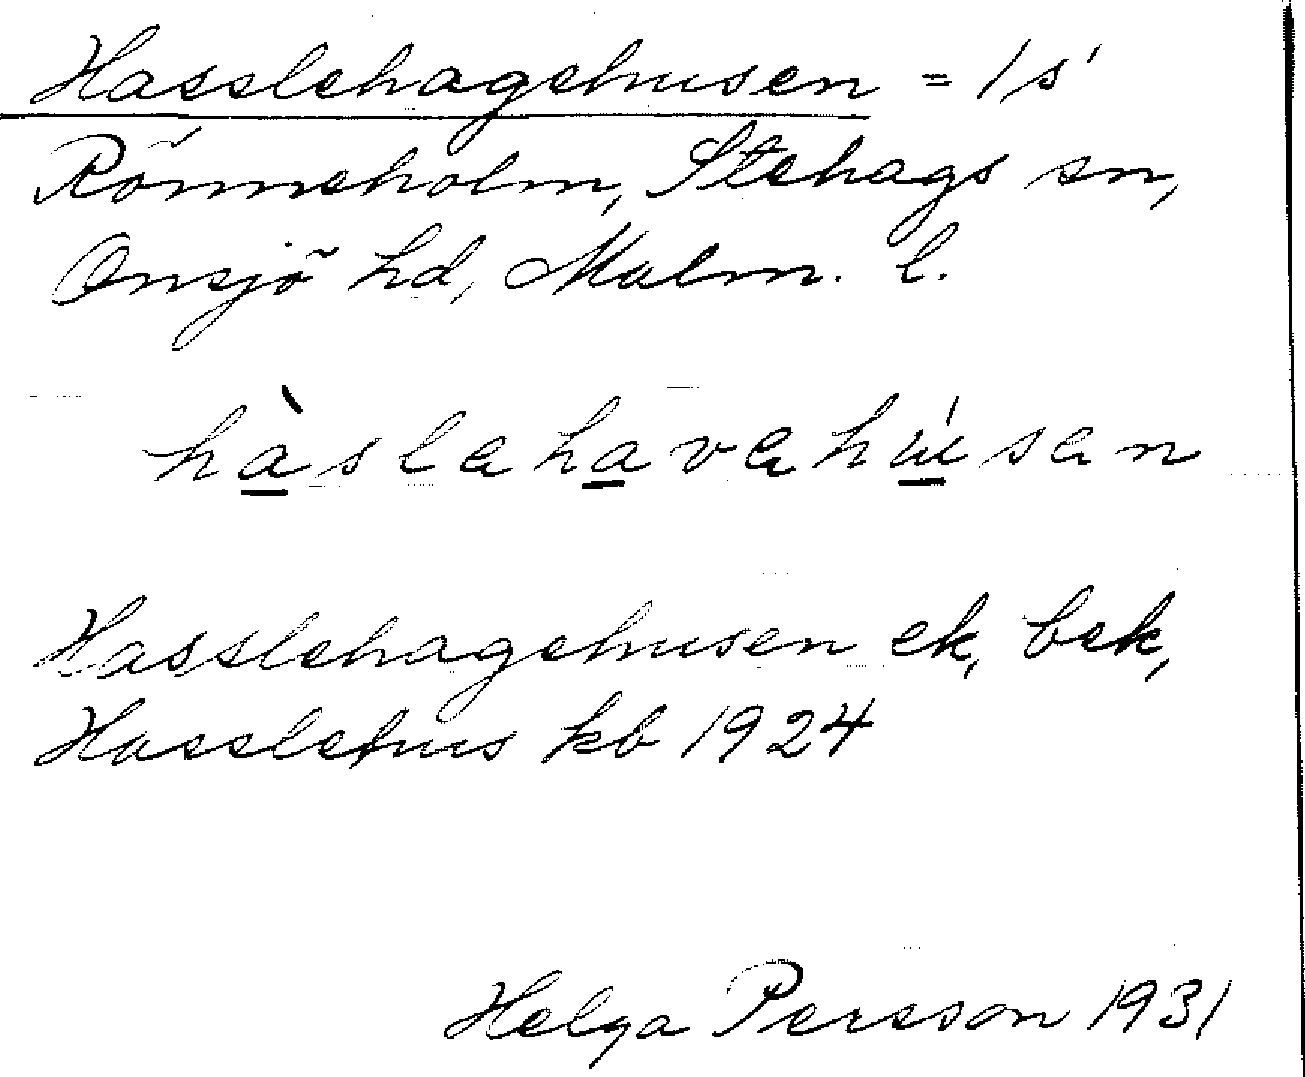 Hasslehagehusen = 1 s'
Rönneholm, Stehags sn,
Onsjö hd, Malm. l.
hàslahavahúsan
Hasslehagehusen ek, bek,
Hasslehus kb 1924
Helga Persson 1931